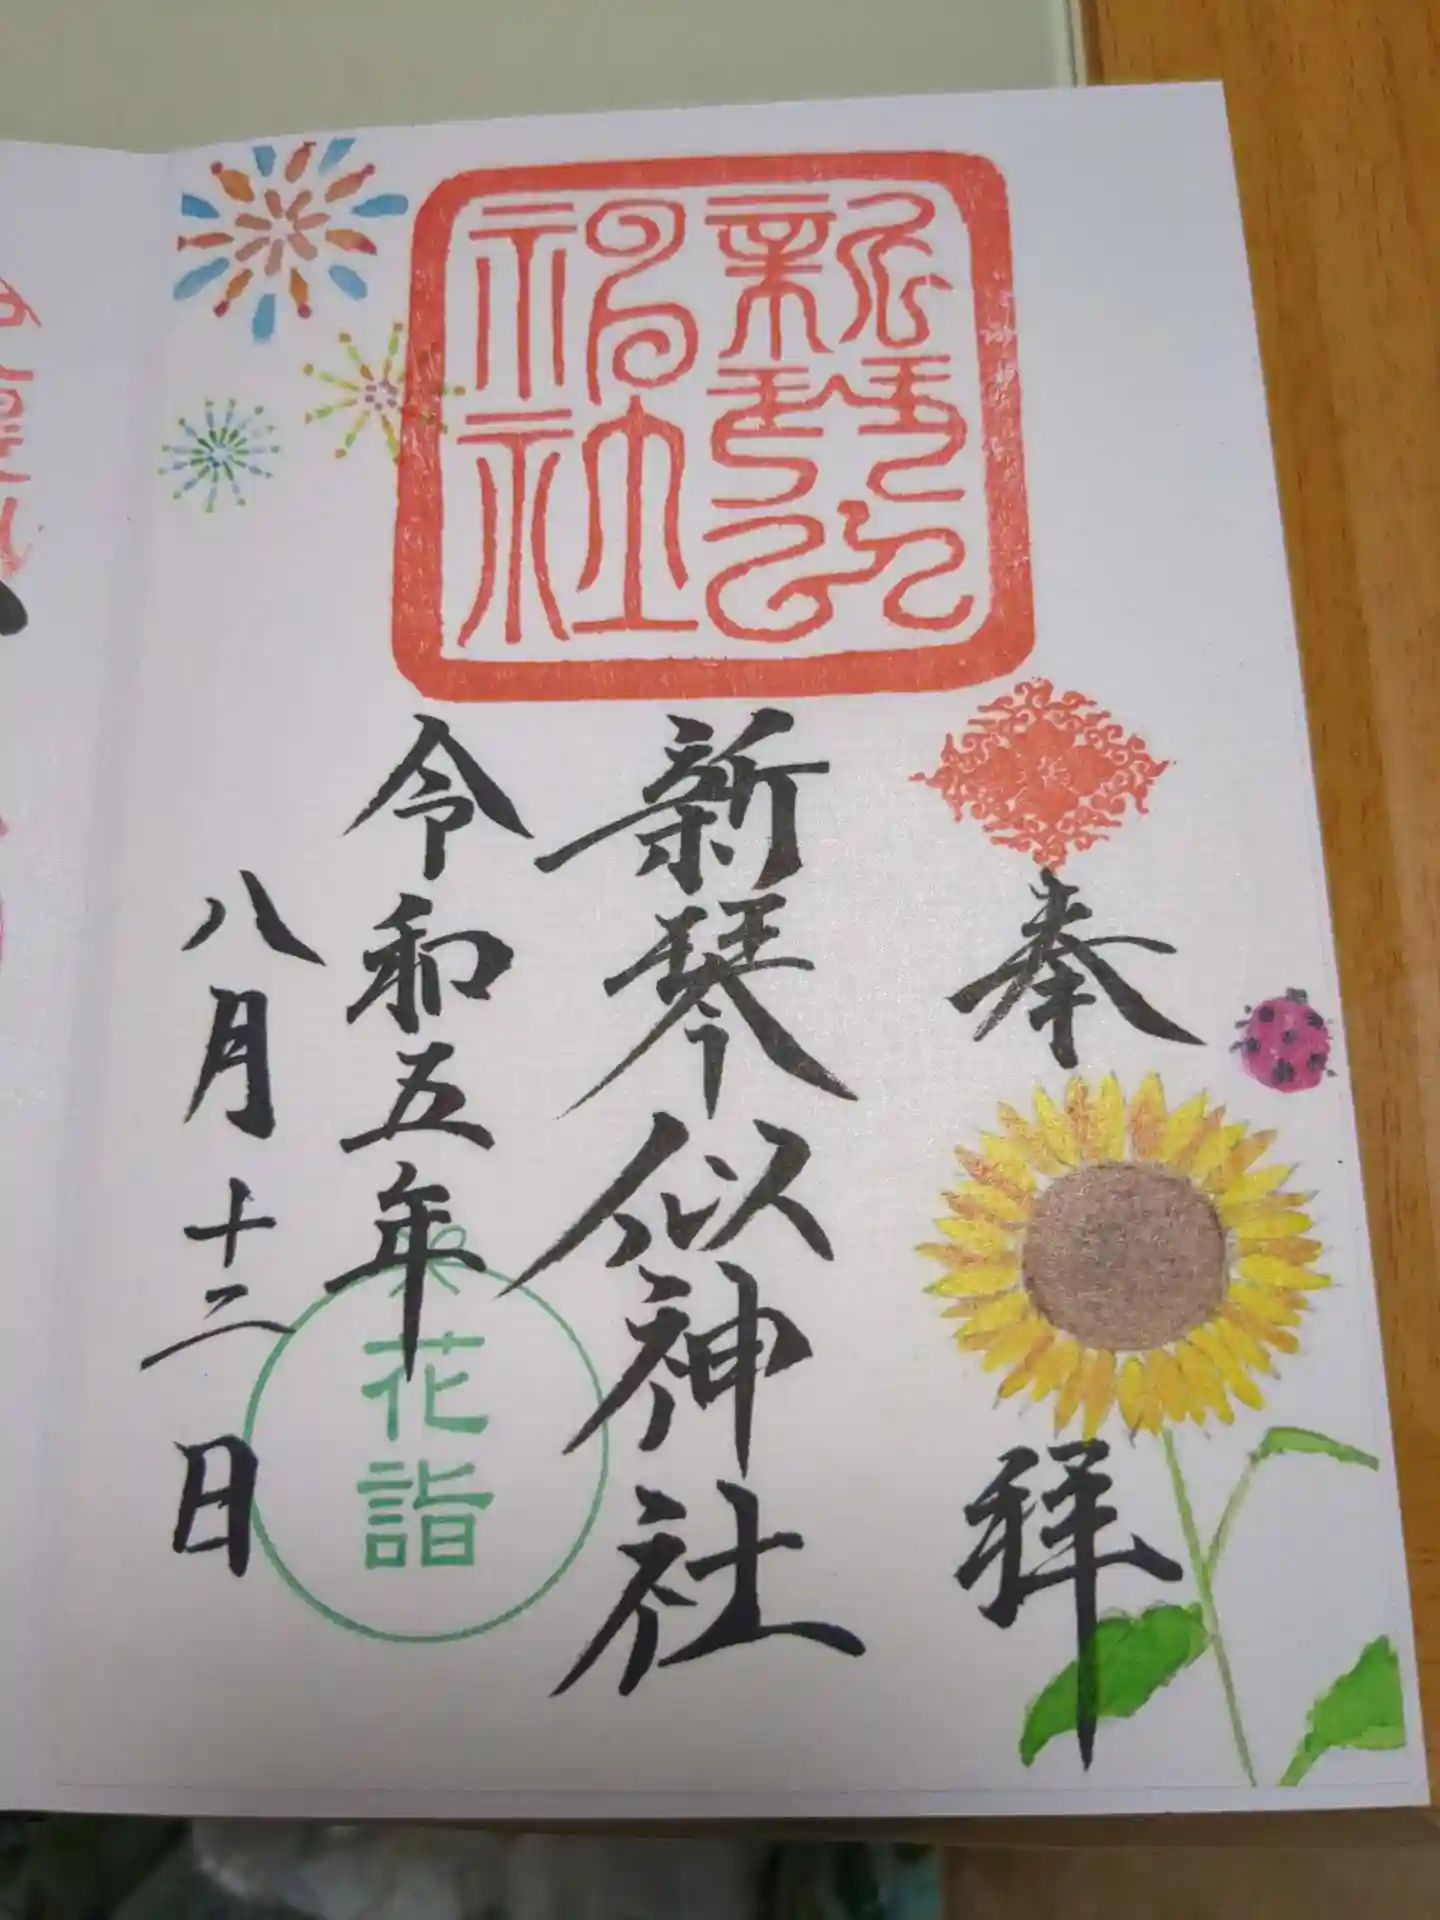 奉拝
新琴似神社
令和五年
八月十二日
新琴似神社
花詣